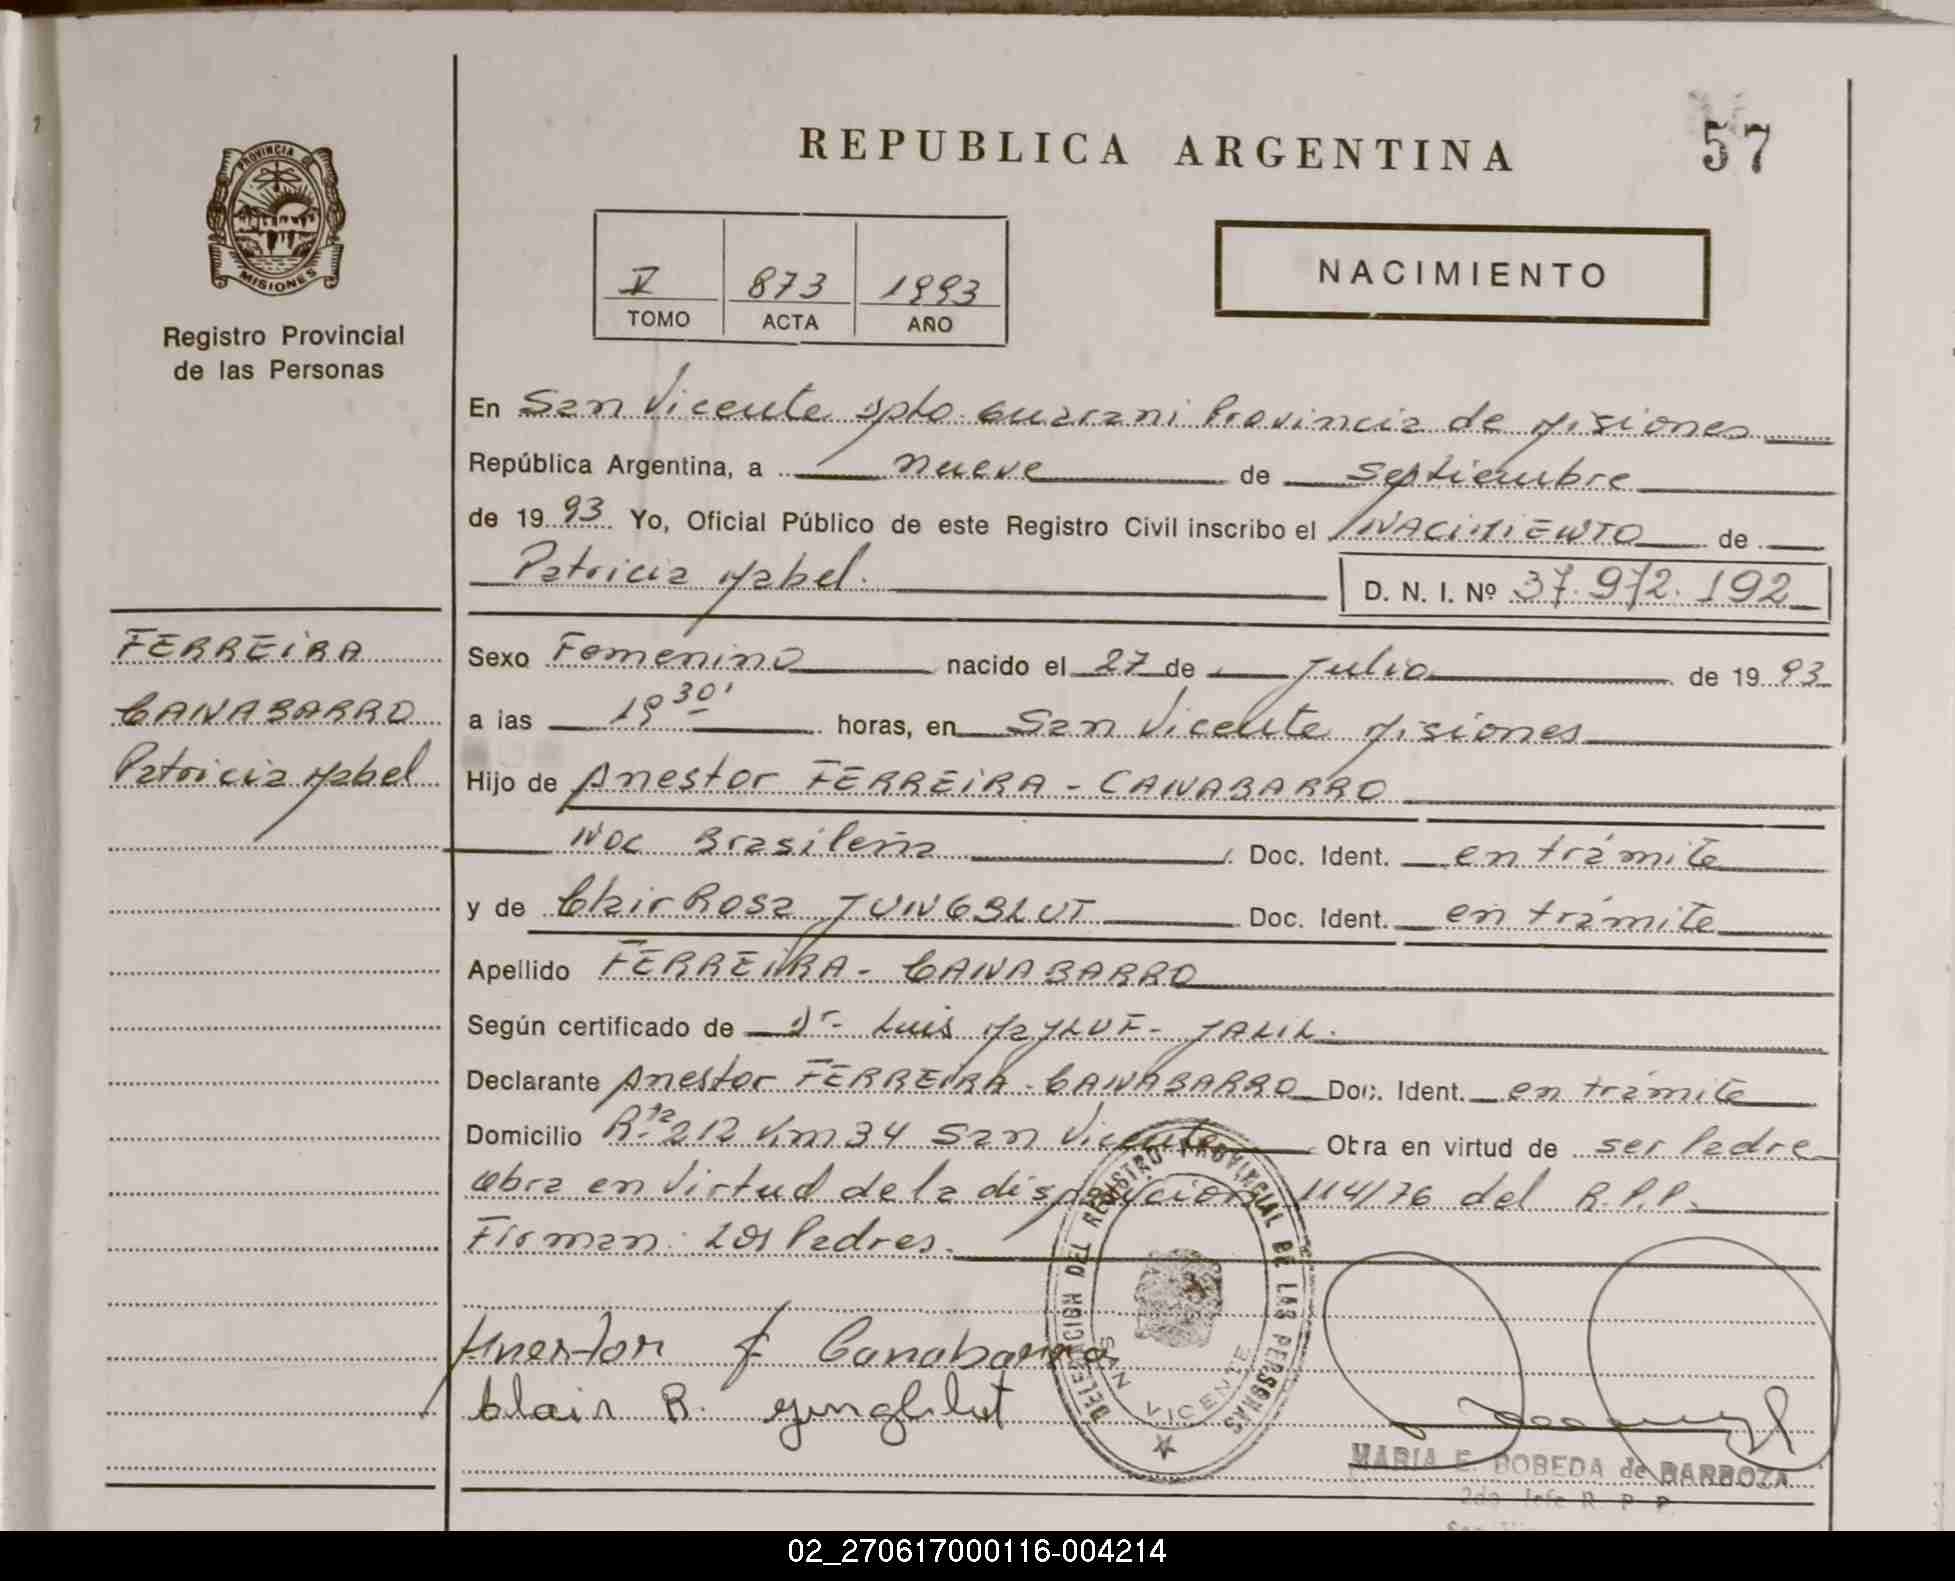 REPUBLICA ARGENTINA
57
PROVINCIA
MISIONES
Registro Provincial
de las Personas
V 873 1993
TOMO ACTA AÑO
NACIMIENTO
En San Vicente Dpto Guarani Provincia de Misiones
República Argentina, a nueve de septiembre
de 19 93 Yo, Oficial Público de este Registro Civil inscribo el NACIMIENTO de
Patricia Mabel. D. N. I. Nº 37.972.192
FERREIRA
CANABARRO
Patricia Mabel
Sexo Femenino nacido el 27 de Julio de 19 93
a las 19 30' horas, en San Vicente Misiones
Hijo de Anestor FERREIRA - CANABARRO
Nac Brasileña Doc. Ident. en trámite
y de Clair Rosa JUNGBLUT Doc. Ident. en trámite
Apellido FERREIRA - CANABARRO
Según certificado de Dr- Luis JALIL.
Declarante Anestor FERREIRA - CANABARRO Doc. Ident. en trámite
Domicilio 212 Km 34 San Vicente Obra en virtud de ser Padre
obra en Virtud de la disposicion 114/76 del R.P.P.
Firman: Los Padres.
Anestor F Canabarro
Clair R. Jungblut
DELEGACION DEL REGISTRO PROVINCIAL DE LAS PERSONAS
SAN VICENTE
MARIA E. BOBEDA de BARBOZA
2do Jefe R. P. P.
02_270617000116-004214